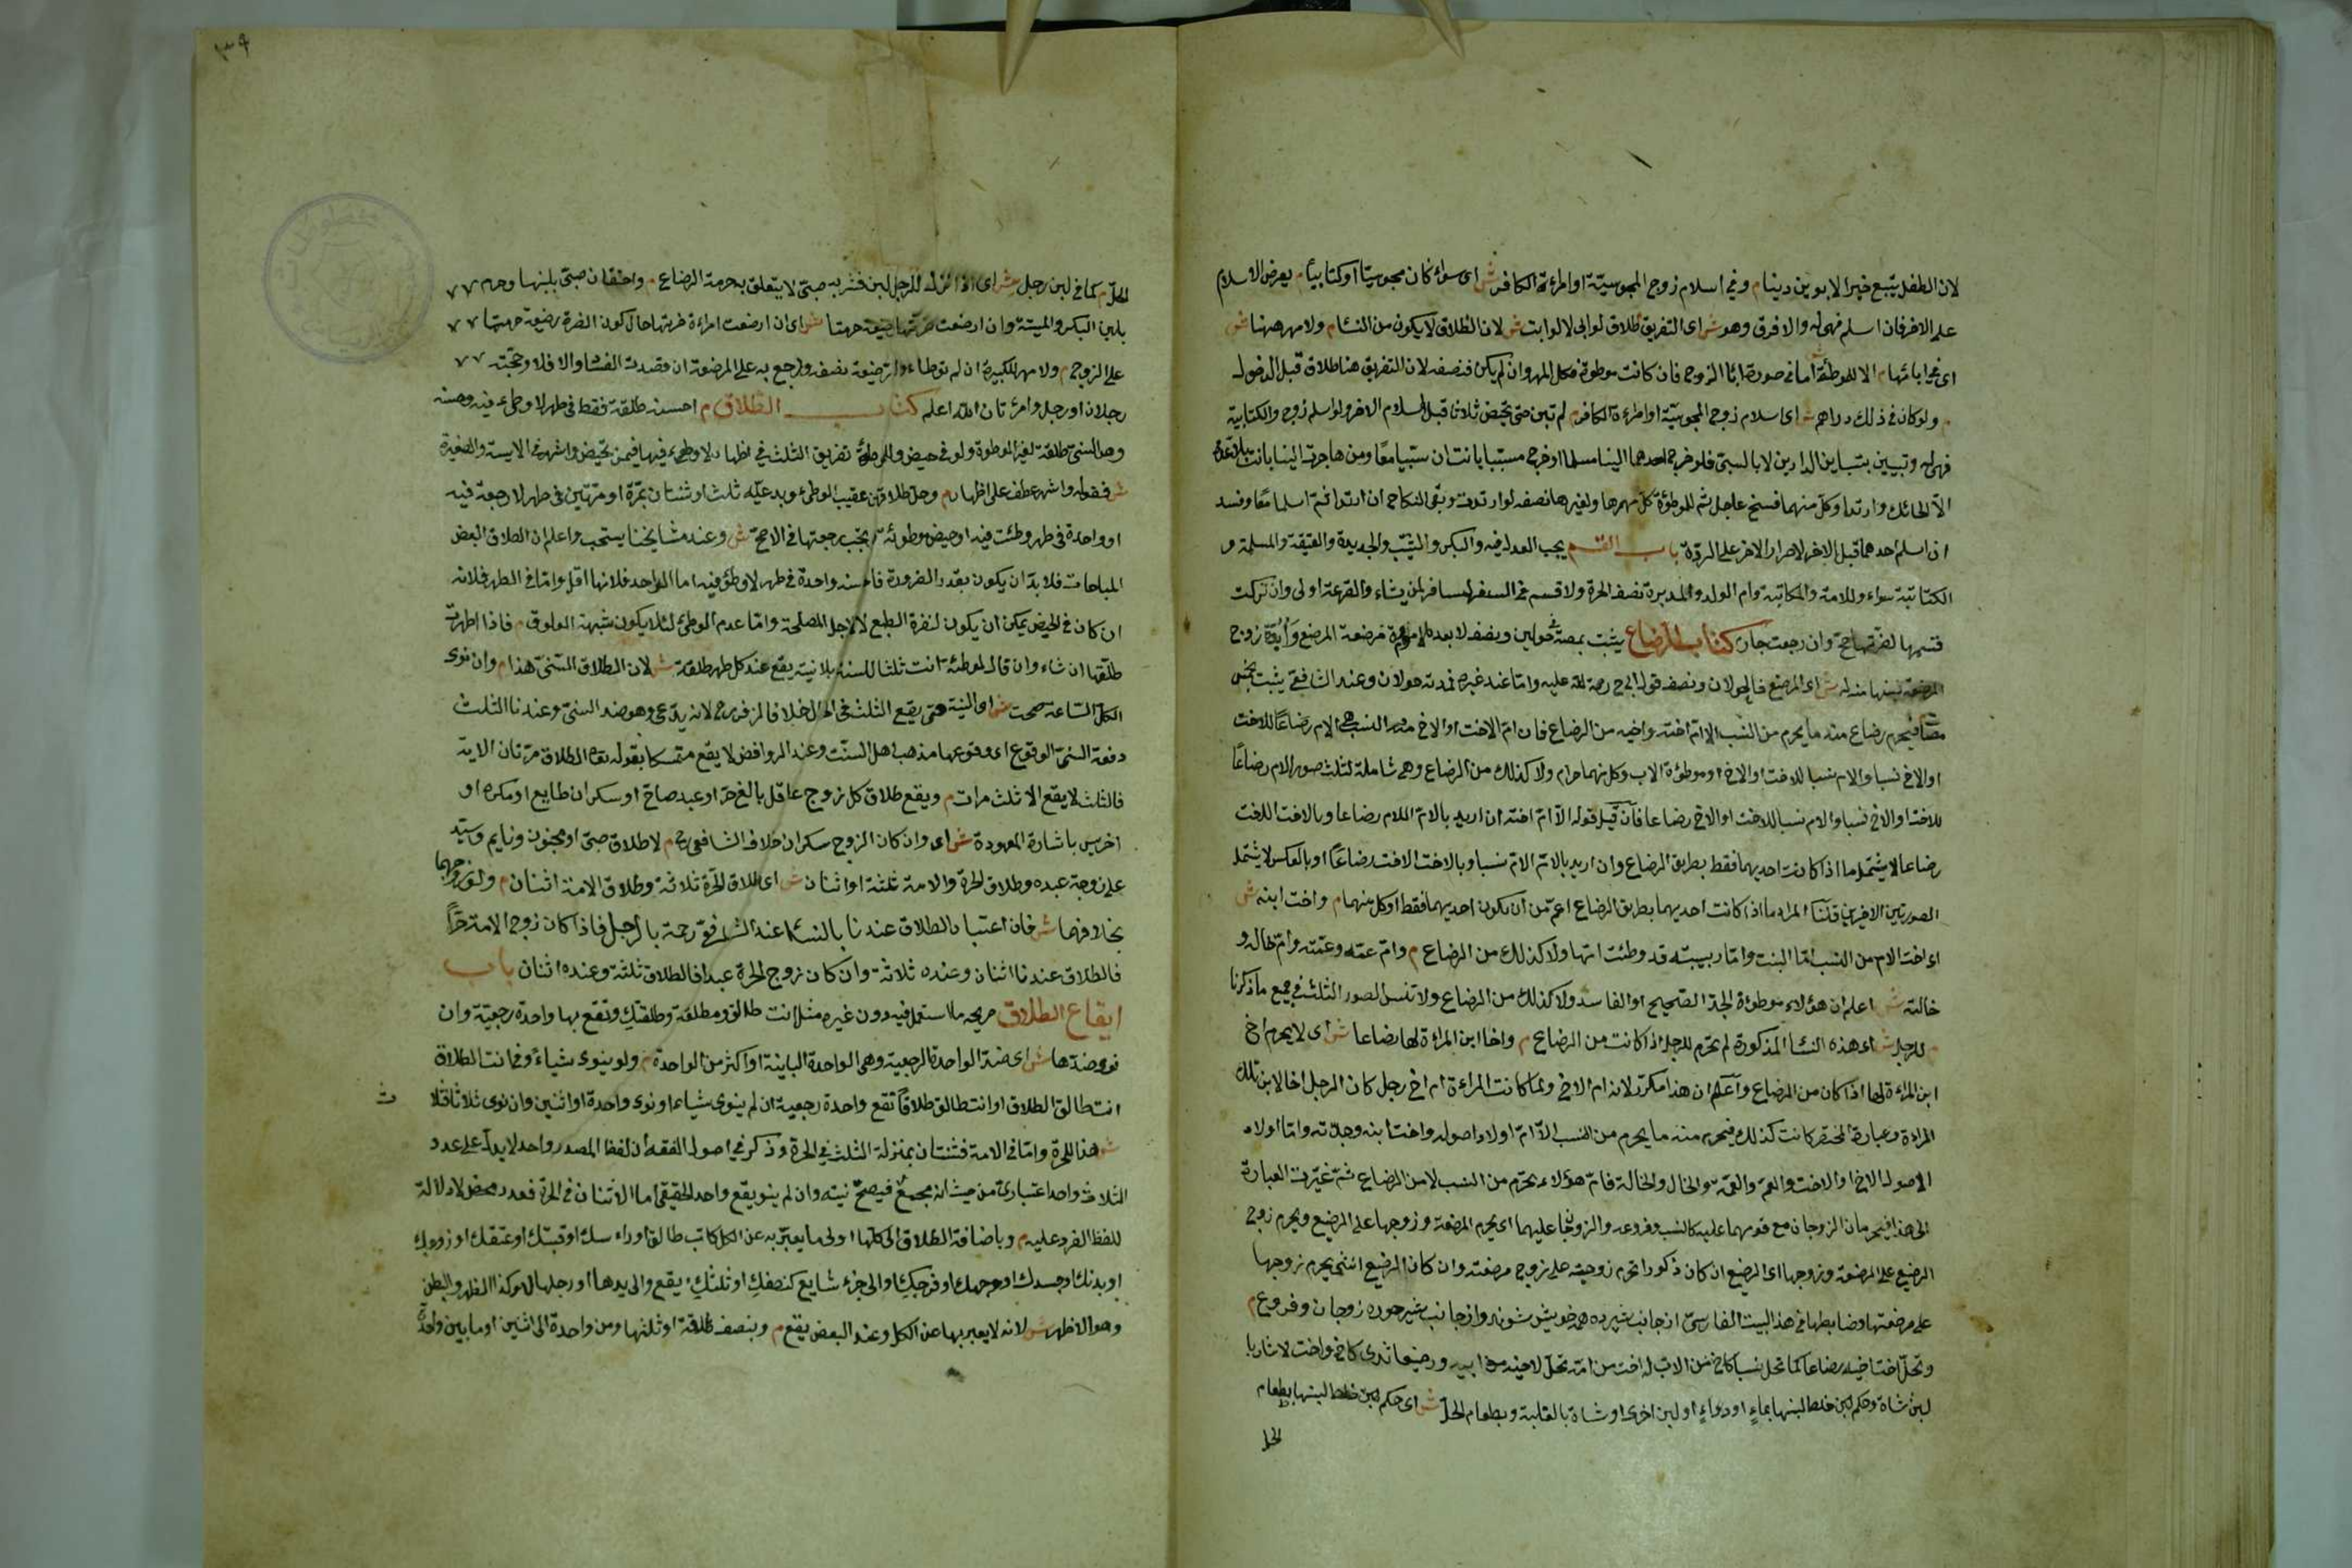 لان الطفل يتبع خير الابوين دينا م وفى اسلام زوج المجوسيّة او امرءة الكافر ش اى سواء كان مجوسيّا او كتابيا م يعرض الاسلام
على الآخر فان اسلم فهى له والا فرق وهو ش اى التفريق طلاق لو ابى لا لو ابت ش لان الطلاق لا يكون من النساء م ولا مهر ههنا ش
اى فى ابائها م الا للموطؤة اما فى صورة اباء الزوج فان كانت موطوءة فكل المهر وان لم يكن فنصفه لان التفريق هنا طلاق قبل الدخول
م ولو كان فى ذلك دارهم ش اى اسلام زوج المجوسيّة او امراءة الكافر م لم تبن حتى تحيض ثلاثا قبل اسلام الآخر ولو اسلم زوج الكتابية
فهى له وتبين بتباين الدارين لا بالسبى فلو خرج احدهما الينا مسلما او اخرج مسبيا بانت وان سبيا معًا لا ومن هاجرت الينا بانت بلا عدة
الا الحائل وارتداد كل منهما فسخ عاجل ثم للموطؤة كل مهرها ولغيرها نصفه لو ارتد وبقى النكاح ان ارتدا ثم اسلما معًا وفسد
ان اسلم احدهما قبل الآخر لاصرار الآخر على الردّة باب القسم يجب العدل فيه والبكر والثيّب والجديدة والعتيقة والمسلمة و
الكتابية سواء وللامة والمكاتبة وام الولد والمدبرة نصف الحرة ولا قسم فى السفر فيسافر بمن يشاء والقرعة اولى وان تركت
قسمها لضرّتها صح وان رجعت جاز كتاب الرضاع يثبت بمصة فى حولين ونصف لا بعده امومة مرضعة للرضيع وابوّة زوج
مرضعة لبنها منه له ش اى للرضيع فالحولان ونصف قول ابى ح رحمة الله عليه واما عند غيره فمدته حولان وعند الشافعى يثبت بخمس
مصّات فيحرم رضاع منه ما يحرم من النسب الا ام اخته واخيه من الرضاع فان ام الاخت او الاخ من النسب هى الام رضاعًا للاخت
او الاخ نسبا والام نسبا للاخت او الاخ او موطؤة الاب وكل منهما حرام ولا كذلك من الرضاع وهى شاملة لثلث صور الام رضاعًا
للاخت او الاخ نسبا والام نسبا للاخت او الاخ رضاعا فان قيل قوله الا ام اخته ان اريد بالام الام رضاعا وبالاخت الاخت
رضاعا لا يشتمل ما اذا كانت احديهما فقط بطريق الرضاع وان اريد بالام الام نسبا وبالاخت الاخت رضاعًا او بالعكس لا يشتمل
الصورتين الاخريين قلنا المراد ما اذا كانت احديهما بطريق الرضاع اعم من ان يكون احديهما فقط او كل منهما م واخت ابنه ش
اى اخت الابن من النسب اما البنت واما ربيبته قد وطئت امها ولا كذلك من الرضاع م وام عمه وعمته وام خاله و
خالته ش اعلم ان هؤلاء موطؤة الجد الصحيح او الفاسد ولا كذلك من الرضاع ولا تنس الصور الثلث فى جميع ما ذكرنا
م للرجل ش اى هذه النساء المذكورة لم تحرم للرجل اذا كانت من الرضاع م واخا ابن المراءة لها رضاعا ش اى لا يحرم اخ
ابن المراءة لها اذا كان من الرضاع واعلم ان هذا مكرر لانه ام الاخ ولما كانت المراءة ام اخ رجل كان الرجل اخا لابن تلك
المراءة وعبارة المختصر كانت كذلك فيحرم منه ما يحرم من النسب الا ام اولاد اصوله واخت ابنه وجدته واما اولاد
الاصول الاخ والاخت والعم والعمة والخال والخالة فام هؤلاء تحرم من النسب لا من الرضاع ثم غيّرت العبارة
الى هذا فيحرمان الزوجان مع قومهما عليه كالنسب وفروعه والزوجان عليهما اى يحرم المرضعة وزوجها على الرضيع ويحرم زوج
الرضيع على المرضعة وزوجها اى الرضيع ان كان ذكورا تحرم زوجيته على زوج مرضعته وان كان الرضيع انثى يحرم زوجها
على مرضعتها وضابطها فى هذا البيت الفارسىّ از جانب شيرده همه خويش شوند واز جانب شيرخوره زوجان وفروع م
وتحل اخت اخيه رضاعا كما تحل نسبا كاخ من الاب له اخت من امه تحل لاخيه من ابيه ورضيعا ثدى كاخ واخت لا شاربا
لبن شاة وحكم لبن خلط لبنها بماء او دواء او لبن اخرى او شاة بالغلبة وبطعام الحلّ ش اى حكم لبن خلط لبنها بطعام
الحل
الحلّ م كما فى لبن رجل ش اى اذا انزل للرجل لبن فشربه صبى لا يتعلق به حرمة الرضاع م واحتقان صبى بلبنها وحرم
بلبن البكر والميتة وان ارضعت ضرتها رضيعة حرمتا ش اى ان ارضعت امراءة ضرتها حال كون الضرة رضيعة حرمتا
على الزوج م ولا مهر للكبيرة ان لم توطاء وللرضيعة نصفه ورجع به على المرضعة ان قصدت الفساد والا فلا وحجّته
رجلان او رجل وامرءتان والله اعلم كتاب الطلاق م احسنه طلقة فقط فى طهر لا وطئ فيه وحسنه
وهو السنىّ طلقة لغير الموطوة ولو فى حيض وللموطؤة تفريق الثلث فى اطهار لا وطئ فيها فيمن تحيض واشهر فى الآيسة والصغيرة
ش فقوله واشهر عطف على اطهار م وحل طلاقهن عقيب الوطئ وبدعيّه ثلث او ثنتان بمرّة او مرّتين فى طهر لا رجعة فيه
او واحدة فى طهر وطئت فيه او حيض موطوئة م يجب رجعتها فى الاصح ش وعند مشايخنا يستحب واعلم ان الطلاق ابغض
المباحات فلا بدّ ان يكون بقدر الضرورة فاحسنه واحدة فى طهر لا وطئ فيه اما الواحد فلانها اقل واما فى الطهر فلانه
ان كان فى الحيض يمكن ان يكون لنفرة الطبع لا لاجل المصلحة واما عدم الوطئ لئلا يكون شبهة العلوق م فاذا طهرت
طلّقها ان شاء وان قال لموطئة انت ثلثا للسنة بلا نيته يقع عند كل طهر طلقة ش لان الطلاق السّنىّ هذا م وان نوى
الكل الساعة صحت ش اى النية حتى يقع الثلث فى الحال خلافا لزفر رح لانه بدعى وهو ضد السنىّ وعندنا الثلث
دفعة السنى الوقوع اى وقوعها مذهب اهل السنّت وعند الروافض لا يقع متمسكا بقوله تعا الطلاق مرّتان الاية
فالثلث لا يقع الا ثلث مرات م ويقع طلاق كل زوج عاقل بالغ حرّ او عبد صاح او سكران طايع او مكره او
اخرس باشارة المعهودة ش اى وان كان الزوج سكران خلاف الشافعى رح م لا طلاق صبىّ او مجنون ونايم وسيّد
على زوجة عبده وطلاق الحرة والامة ثلثة او اثنان ش اى طلاق الحرة ثلاثة وطلاق الامة اثنان م ولو زوجهما
بخلافهما ش فان اعتبار الطلاق عندنا بالنساء عند الشافعى رحمه بالرجل فاذا كان زوج الامة حرًّا
فالطلاق عندنا اثنان وعنده ثلاثة وان كان زوج الحرة عبدا فالطلاق ثلثة وعنده اثنان باب
ايقاع الطلاق صريحه ما استعمل فيه دون غيره مثل انت طالق ومطلقة وطلقتك وتقع بها واحدة رجعيّة وان
نوى ضدها ش اى ضد الواحدة الرجعية وهى الواحدة الباينة او اكثر من الواحدة م ولو ينوى شياءً وفى انت الطلاق
انت طالق الطلاق او انت طالق طلاقًا تقع واحدة رجعية ان لم ينوى شياء او نوى واحدة او اثنين وان نوى ثلاثا فثلا
ث
ش هذا للحرة واما فى الامة فثنتان بمنزلة الثلث فى الحرة وذكر فى اصول الفقه ان لفظ المصدر واحد لا يدل على عدد
الثلاث واحد اعتبارى من حيث انه مجموع فيصحّ نيته وان لم ينو يقع واحد الحقيقى اما الاثنان فى الحرة فعدد محض لا دلالة
للفظ الفرد عليه م وباضافة الطلاق الى كلها او لى ما يعبّر به عن الكل كانت طالق او راءسك او رقبتك او عنقك او روحك
او بدنك او جسدك او وجهك او فرجك او الى جزء شايع كنصفك او ثلثك يقع والى يدها او رجلها لا وكذا الظهر والبطن
وهو الاظهر ش لانه لا يعبر بها عن الكل وعند البعض يقع م وبنصف طلقة او ثلثها ومن واحدة الى اثنين او ما بين واحدة